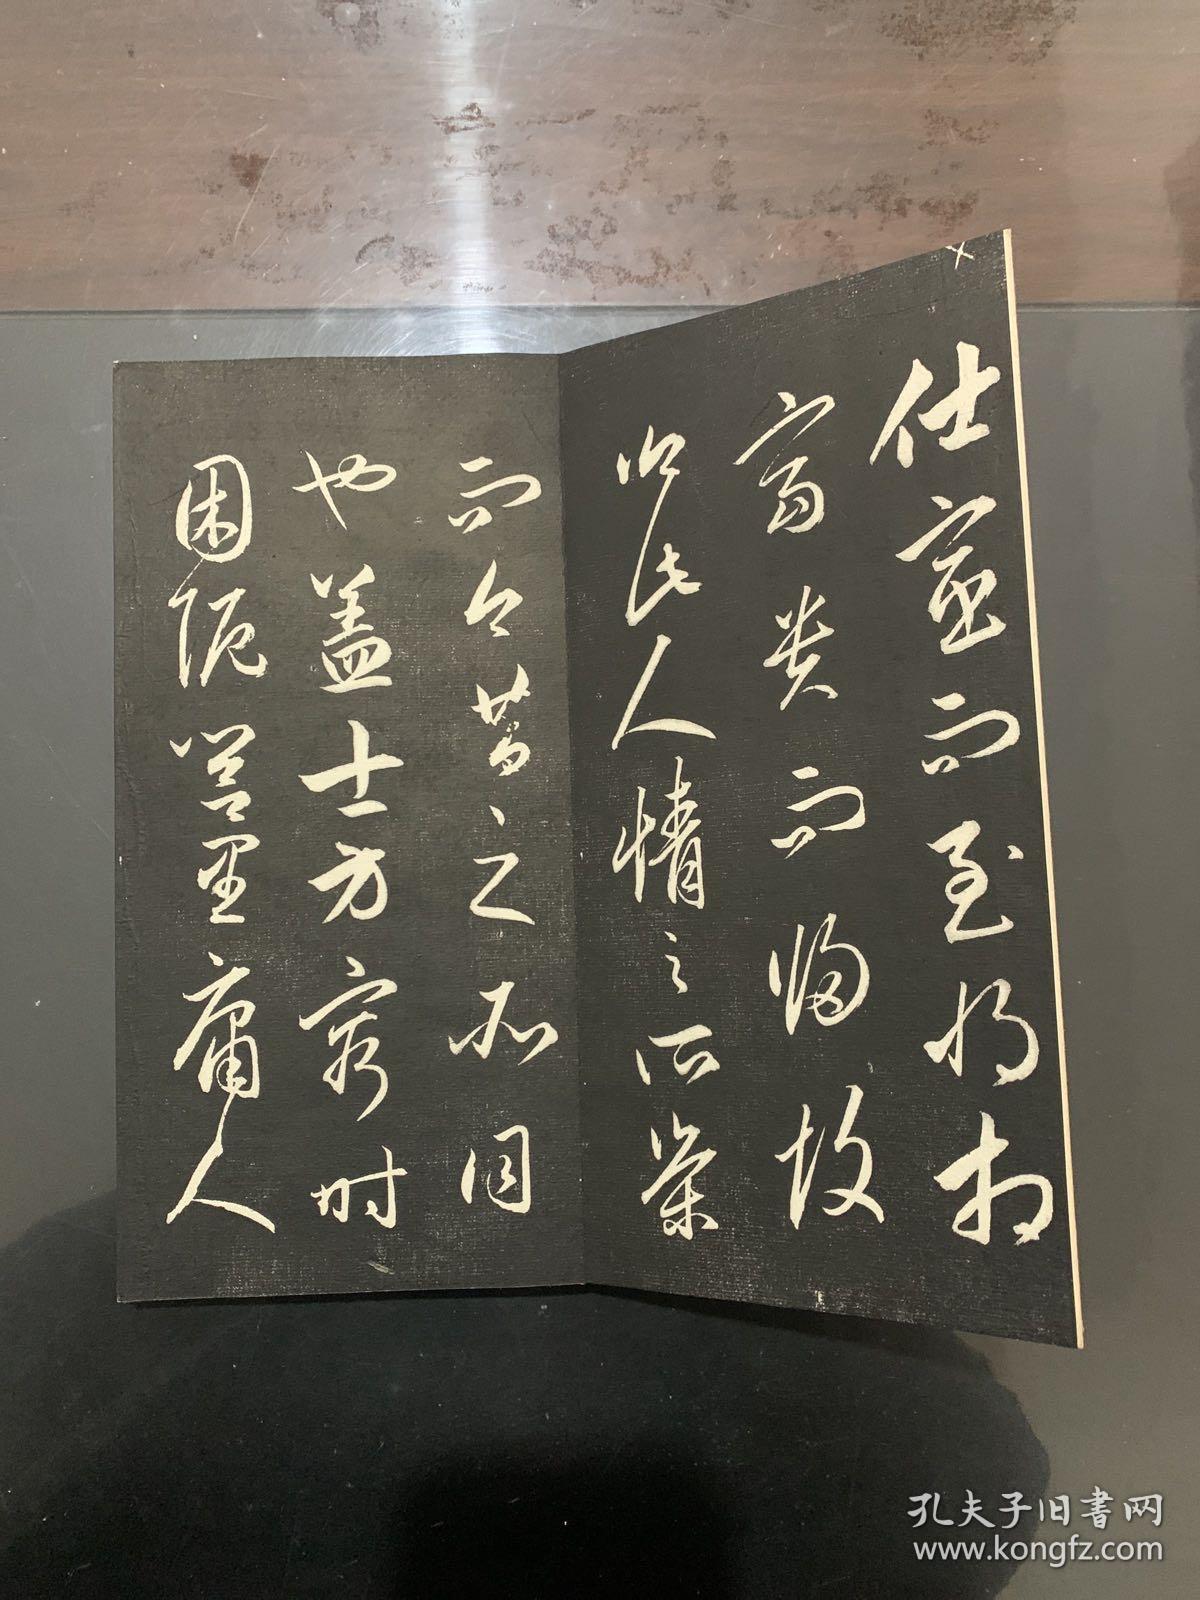 仕宦而至将相
富贵而归故
乡此人情之所荣
而今昔之所同
也盖士方穷时
困阨闾里庸人
孔夫子旧书网
www.kongfz.com